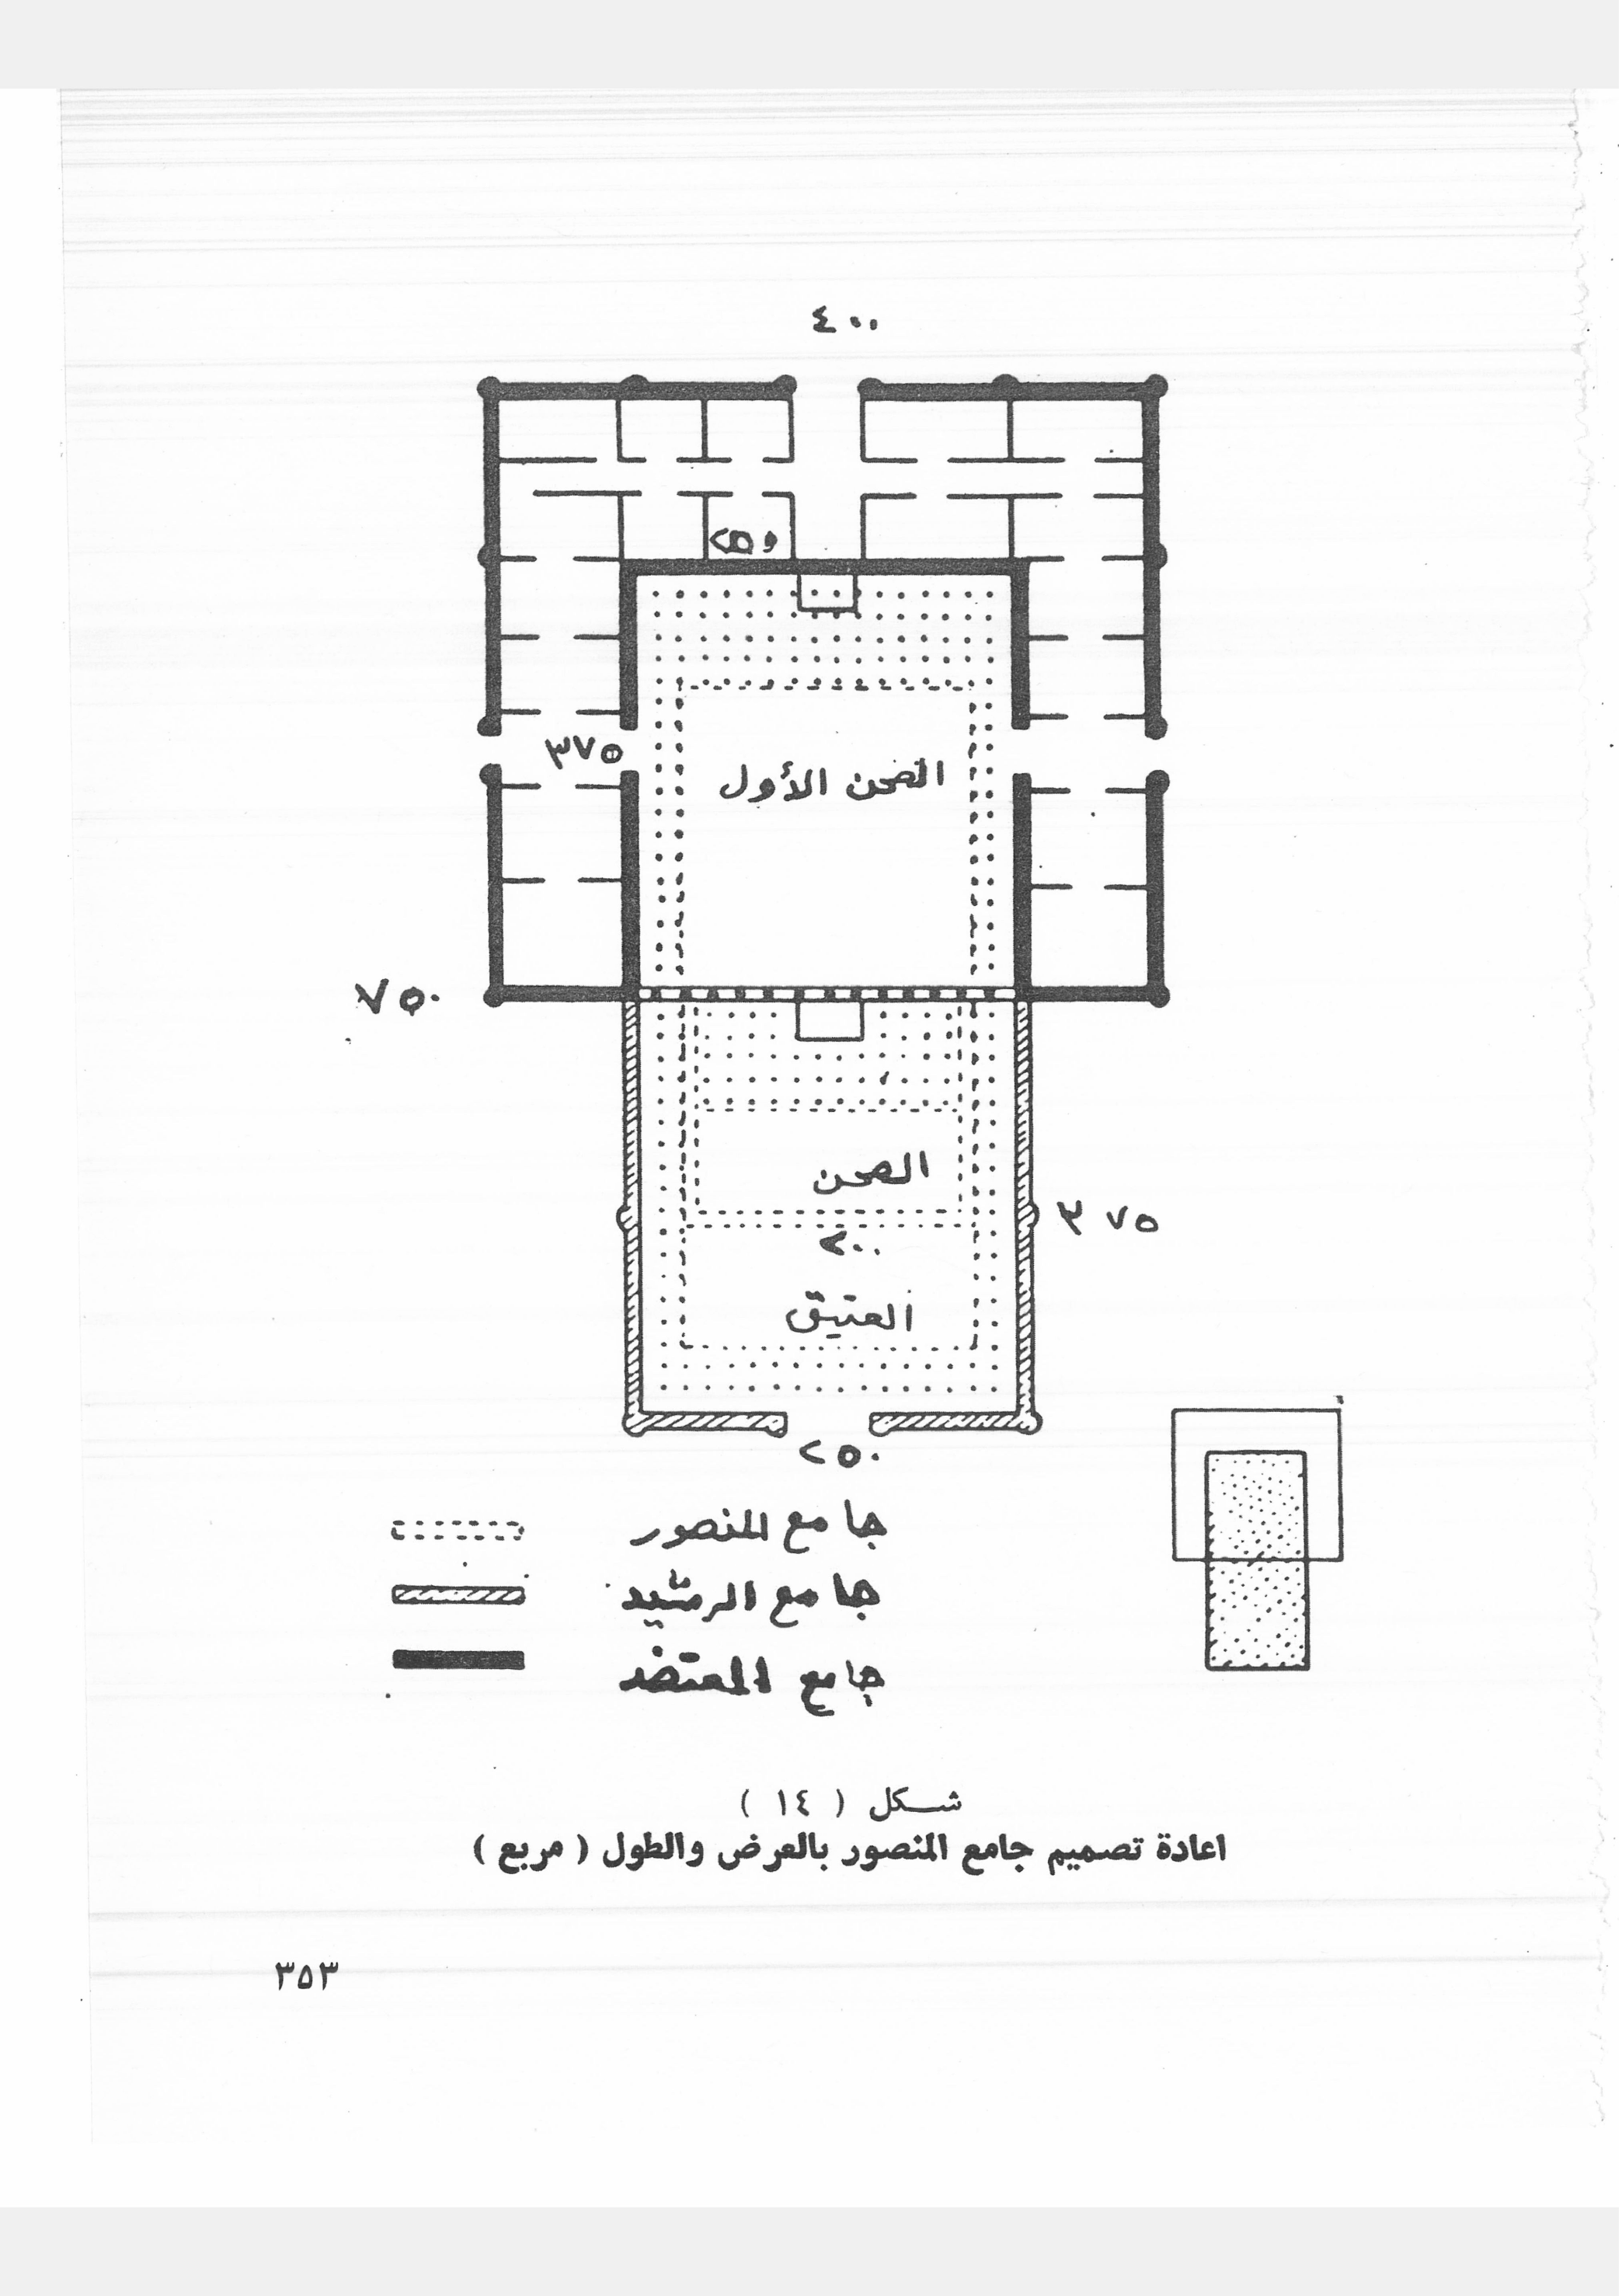 ٤٠٠
٢٥٠
٣٧٥
الصحن الأول
٧٥٠
الصحن
٣٧٥
٢٠٠
العتيق
٢٥٠
جامع المنصور
جامع الرشيد
جامع المعتضد
شكل ( ١٤ )
اعادة تصميم جامع المنصور بالعرض والطول ( مربع )
٣٥٣